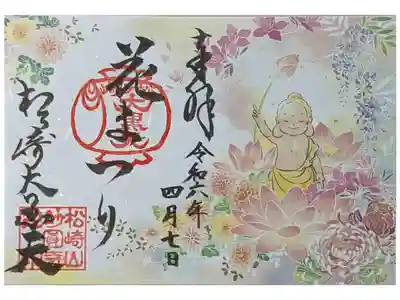 奉拝
令和六年
四月七日
花まつり
松ヶ崎大黒天
松崎山
妙圓寺